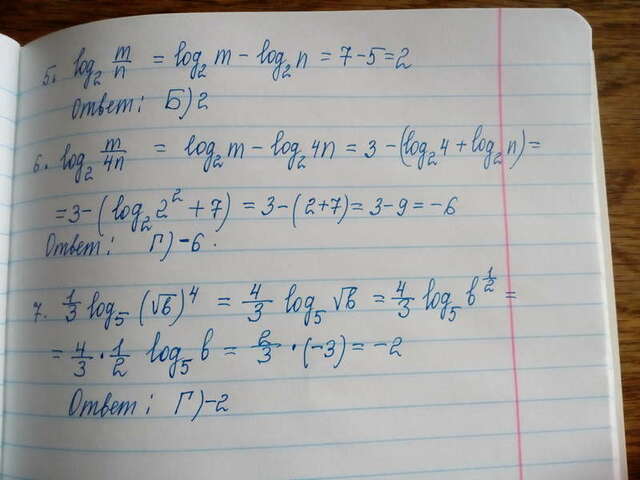 5. log₂ m/n = log₂m − log₂n = 7−5=2
Ответ: Б) 2
6. log₂ m/4n = log₂m − log₂4n = 3 − (log₂4 + log₂n) =
= 3 − (log₂2² + 7) = 3 − (2+7) = 3−9 = −6
Ответ: Г) −6.
7. 1/3 log₅ (√b)⁴ = 4/3 log₅ √b = 4/3 log₅ b^1/2 =
= 4/3 · 1/2 log₅b = 2/3 · (−3) = −2
Ответ: Г) −2